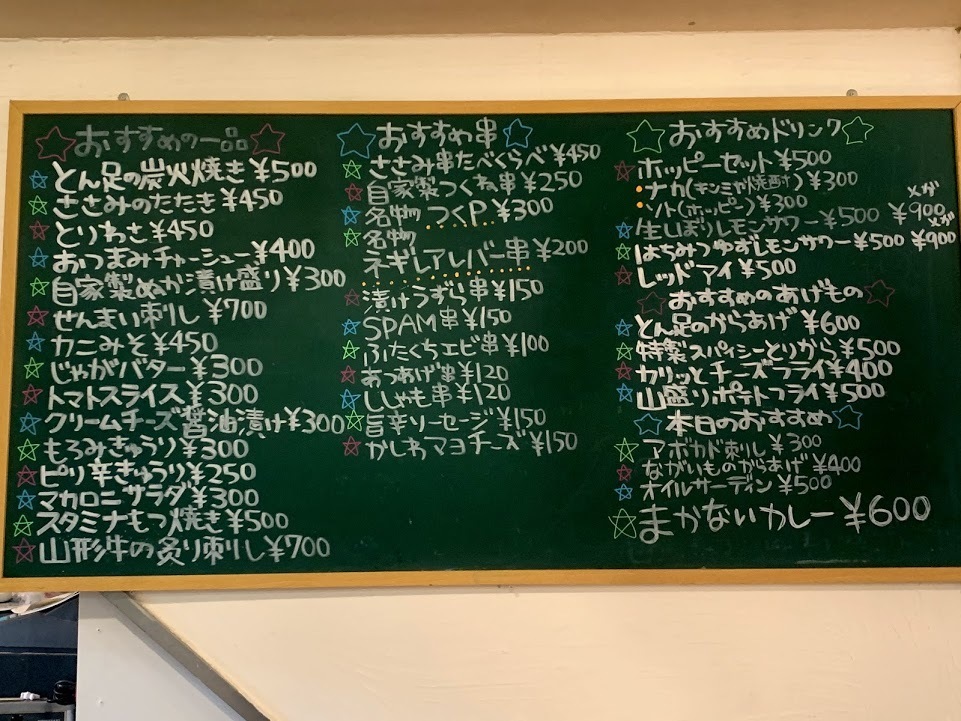 おすすめの一品
とん足の炭火焼き ¥500
ささみのたたき ¥450
とりわさ ¥450
おつまみチャーシュー ¥400
自家製ぬか漬け盛り ¥300
せんまい刺し ¥700
カニみそ ¥450
じゃがバター ¥300
トマトスライス ¥300
クリームチーズ醤油漬け ¥300
もろみきゅうり ¥300
ピリ辛きゅうり ¥250
マカロニサラダ ¥300
スタミナもつ焼き ¥500
山形牛の炙り刺し ¥700
おすすめ串
ささみ串たべくらべ ¥450
自家製つくね串 ¥250
名物 つくP ¥300
名物
ネギレアレバー串 ¥200
漬けうずら串 ¥150
SPAM串 ¥150
ふたくちエビ串 ¥100
あつあげ串 ¥120
ししゃも串 ¥120
旨辛ソーセージ ¥150
かしわマヨチーズ ¥150
おすすめドリンク
ホッピーセット ¥500
ナカ(キンミヤ焼酎) ¥300
ソト(ホッピー) ¥300
生しぼりレモンサワー ¥500 メガ ¥900
はちみつゆずレモンサワー ¥500 メガ ¥900
レッドアイ ¥500
おすすめのあげもの
とん足のからあげ ¥600
特製スパイシーとりから ¥500
カリッとチーズフライ ¥400
山盛りポテトフライ ¥500
本日のおすすめ
アボカド刺し ¥300
ながいものからあげ ¥400
オイルサーディン ¥500
まかないカレー ¥600